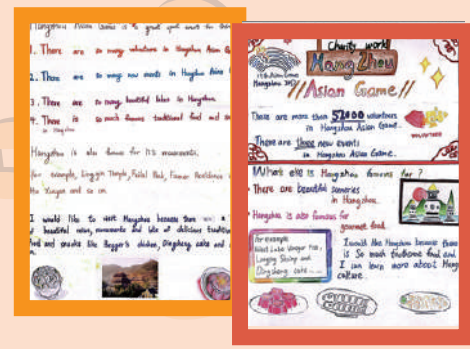 Hangzhou Asian Games is a great
1. There are so many volunteers in Hangzhou Asian G
2. There are so many new events in Hangzhou Asian
3. There are so many beautiful lakes in Hangzhou
4. There is so much famous traditional food and
in Hangzhou
Hangzhou is also famous for its monuments.
For example, Lingyin Temple, Former Residence
Xueyan and so on
I would like to visit Hangzhou because there
beautiful views, monuments and lots of delicious
food and snacks like Beggar's chicken, Dingsheng cake and
Charity world
Hang Zhou
19th Asian Games
Hangzhou
//Asian Game//
There are more than 52000 volunteers
in Hangzhou Asian Game.
There are three new events
in Hangzhou Asian Game.
VOLUNTEER
What else is Hangzhou famous for?
• There are beautiful sceneries
in Hangzhou.
• Hangzhou is also famous for
gourmet food.
For example
West Lake Vinegar Fish,
Longjing Shrimp and
Dingsheng cake
I would like Hangzhou because there
is so much food and
I can learn more about Hang
culture.